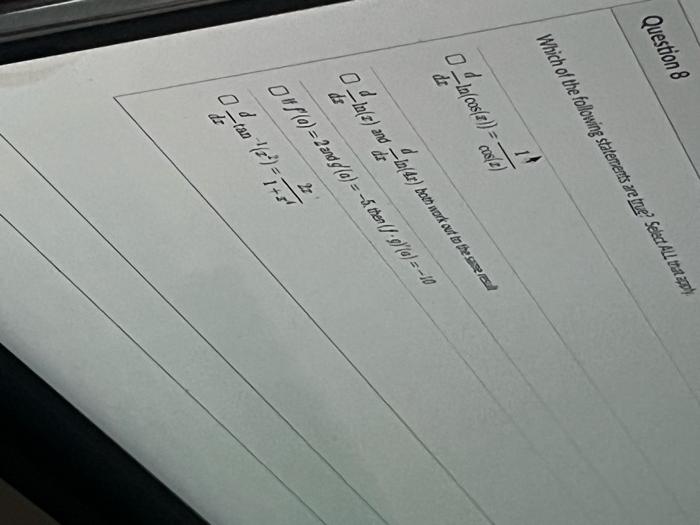 Question 8
Which of the following statements are true? Select ALL that apply
d/dx ln(cos(x)) = 1/cos(x)
d/dx ln(x) and d/dx ln(4x) both work out to the same result
If f'(a) = 2 and g'(a) = -5, then (f · g)'(a) = -10
d/dx tan⁻¹(x²) = 2x/1+x⁴